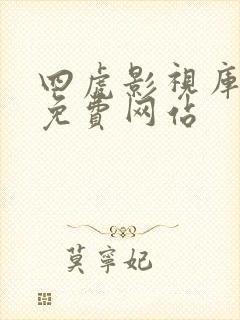 四虎影視庫
免費网佔
莫寧妃